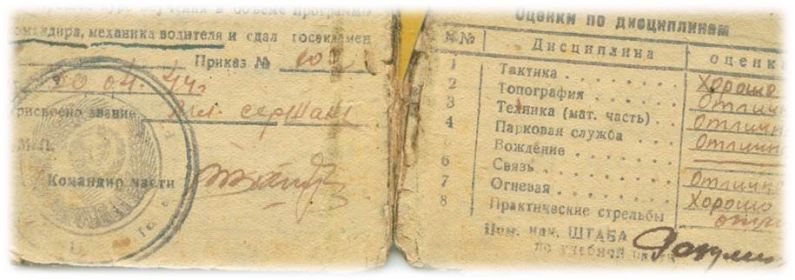 курс обучения в объеме программы
командира, механика водителя и сдал госэкзамен
Приказ №
20.04.44г
присвоено звание мл. сержант
М. П.
Командир части
Оценки по дисциплинам
№№ Дисциплина оценка
1 Тактика . . . . . . . Хорошо
2 Топография . . . . . . Отлично
3 Техника (мат. часть) . . . Отлично
4 Парковая служба . . . . Отлично
Вождение . . . . . . .
6 Связь . . . . . . . . Отлично
7 Огневая . . . . . . . Хорошо
8 Практические стрельбы
Пом. нач. ШТАБА
по учебной части